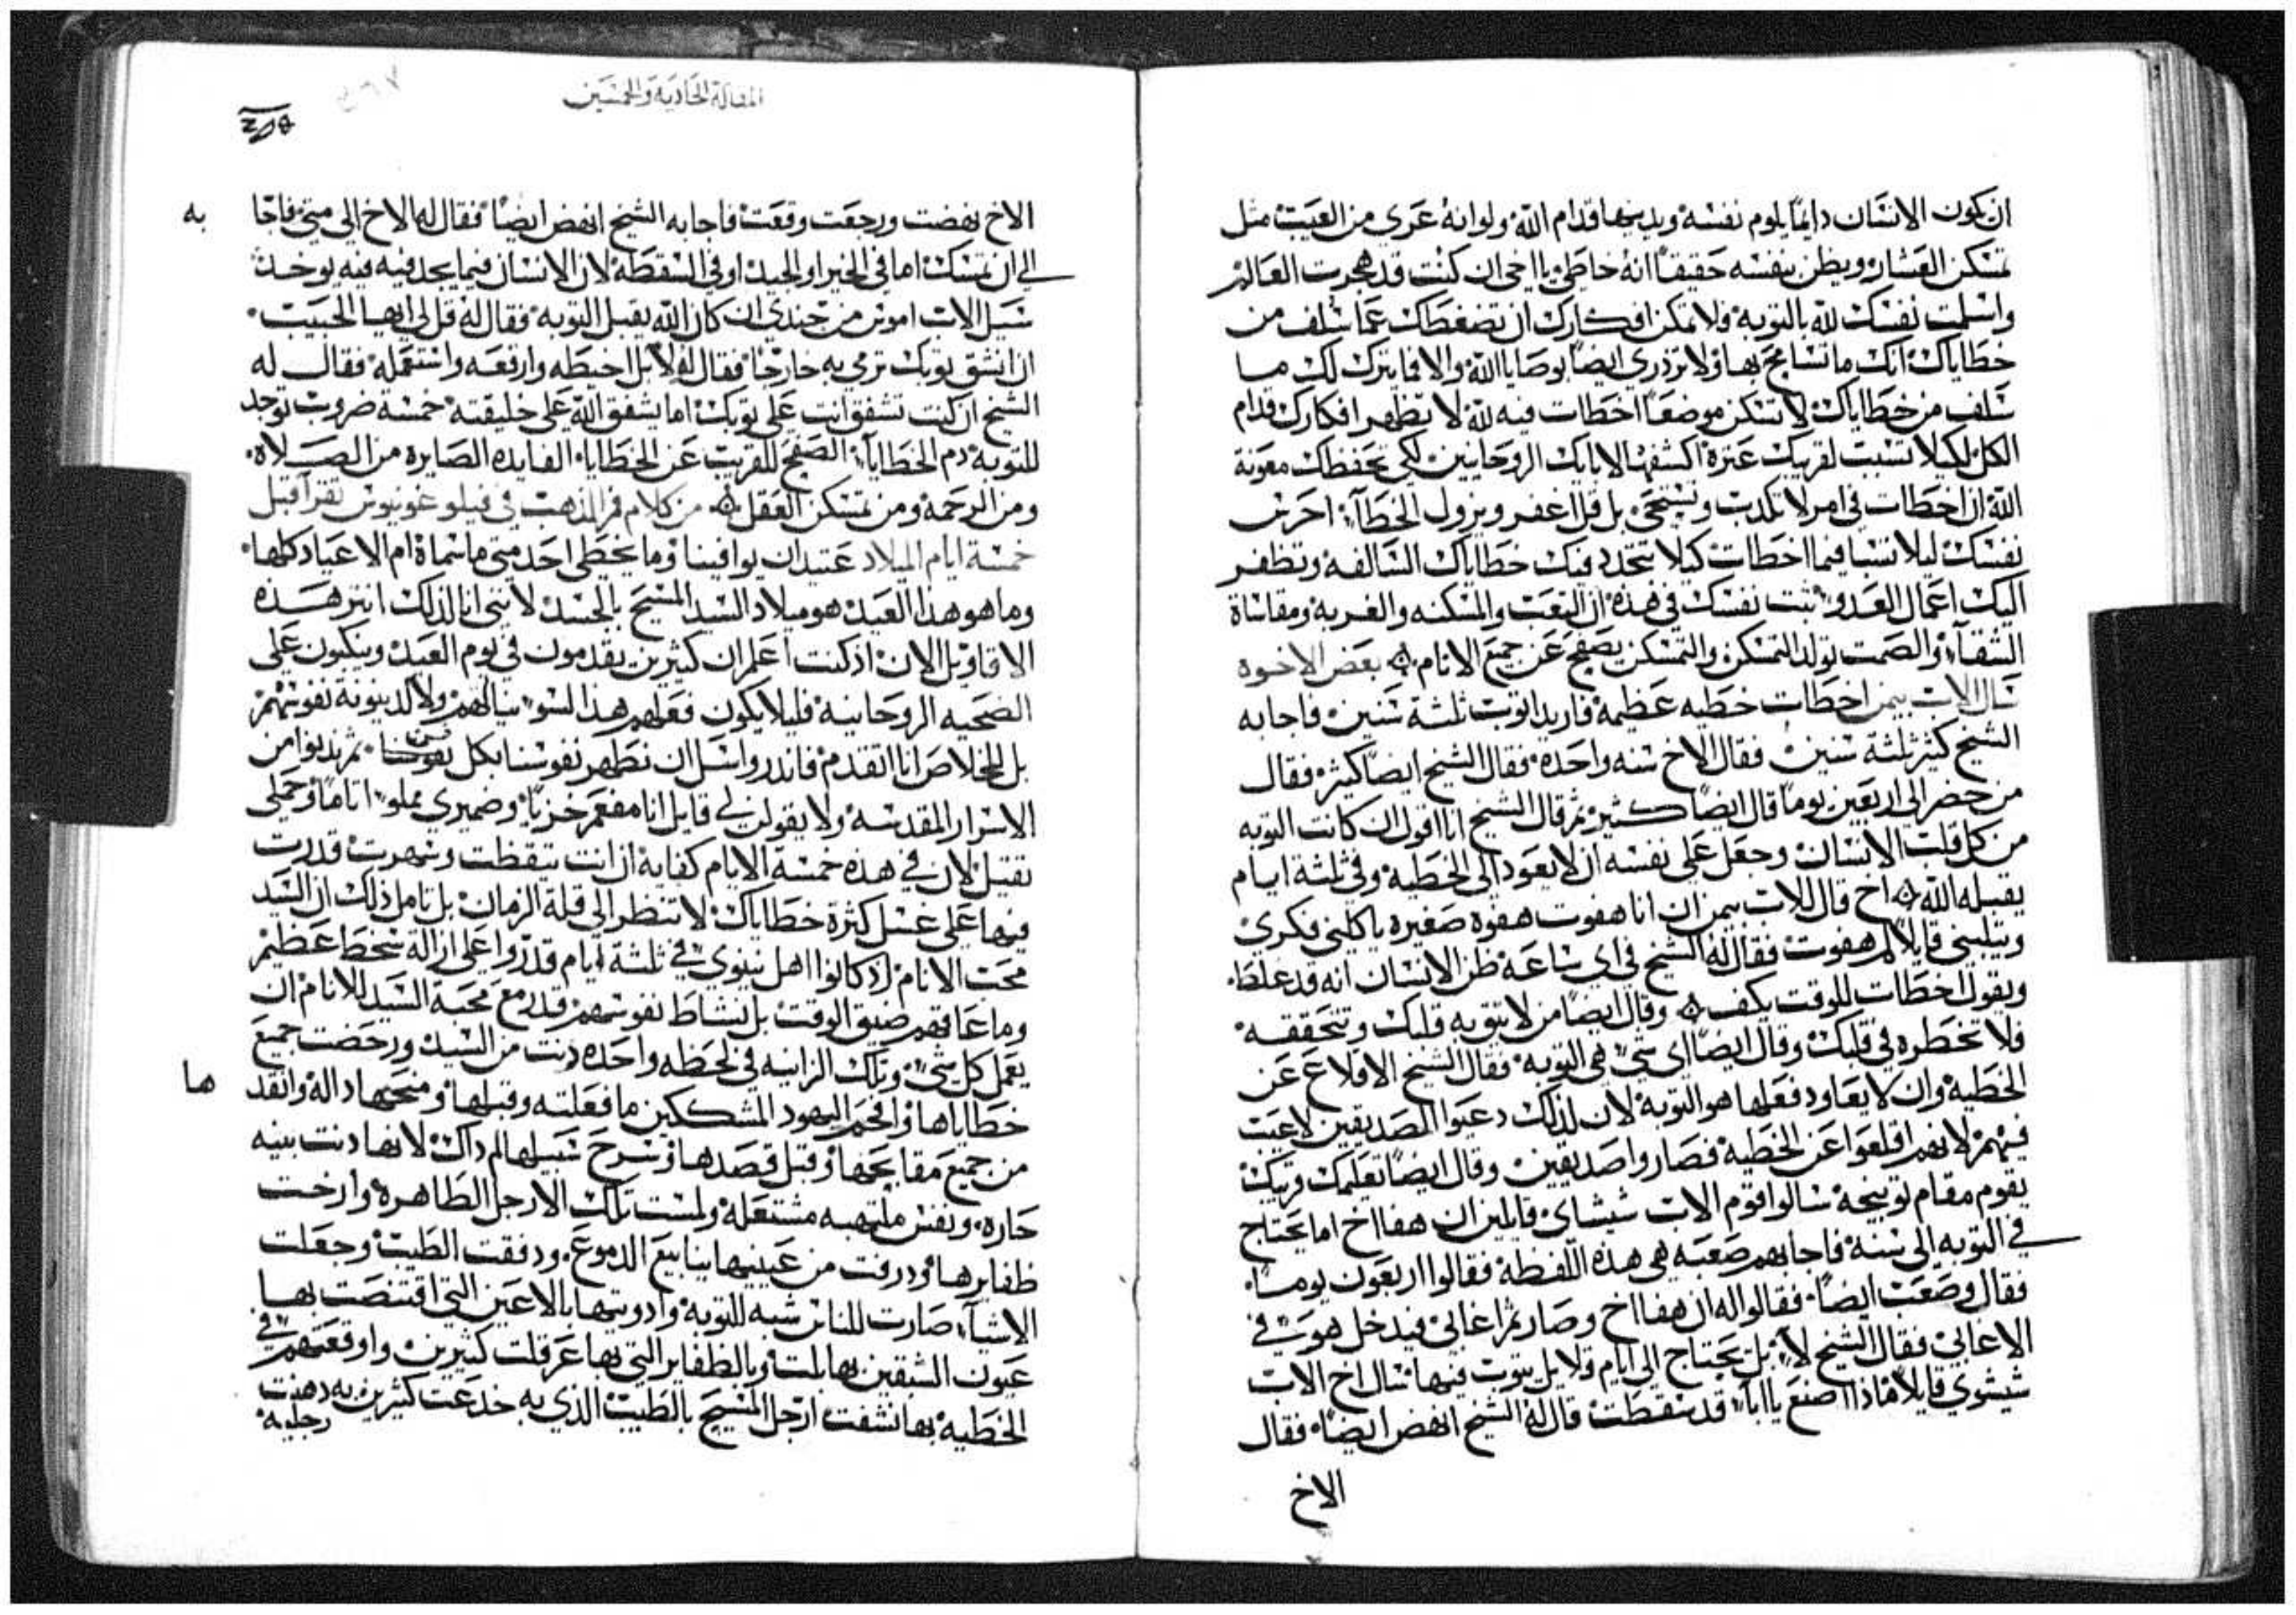 ان يكون الانسان دايمًا يلوم نفسه ويدينها قدام الله ولو انه عري من العيب مثل
تمسكن العشار ويظن بنفسه حقيقًا انه خاطي يا اخي ان كنت قد هجرت العالم
واسلمت نفسك لله بالتوبه ولا تمكن افكارك ان تضغطك عما سلف من
خطاياك انك ما تسامح بها ولا تزدري ايضًا بوصايا الله والا فما يترك لك ما
سلف من خطاياك لا تسكن موضعًا اخطات فيه لله لا تظهر افكارك قدام
الكل لكيلا تسبب لقريبك عثرة اكشفها لابايك الروحانيين لكي تحفظك معونة
الله ان اخطات في امر لا تكذب وتستحي بل قل اغفر ويزول الخطاء احرس
نفسك ليلا تنسا فيما اخطات كيلا تتجدد فيك خطاياك السالفه وتظفر
اليك اعمال العدو ثبت نفسك في هذه ان التعب والمسكنه والغربه ومقاساة
الشقاء والصمت تولد التمسكن والتمسكن يصفح عن جميع الانام بعض الاخوه
سال الاب بيمن اخطات خطيه عظيمة فاريد اتوب ثلثة سنين فاجابه
الشيخ كثير ثلثة سنين فقال الاخ سنه واحدة فقال الشيخ ايضًا كثير فقال
من حضر الى اربعين يومًا قال ايضًا كثير ثم قال الشيخ انا اقول ان كانت التوبه
من كل قلب الانسان وجعل على نفسه ان لا يعود الى الخطية وفي ثلثة ايام
يقبله الله اخ قال للاب بيمن ان انا هفوت هفوة صغيره ياكلني فكري
ويثلبني قايلًا لم هفوت فقال له الشيخ في اي ساعة ظن الانسان انه قد غلط
ويقول اخطات للوقت يكف وقال ايضًا من لا يتوب قلبك وتتحققه
فلا تخطره في قلبك وقال ايضًا اي شيء هي التوبه فقال الشيخ الاقلاع عن
الخطية وان لا يعاود فعلها هو التوبه لان لذلك دعيوا الصديقين لا عيب
فيهم لانهم اقلعوا عن الخطية فصاروا صديقين وقال ايضًا تعليمك قريبك
يقوم مقام توبيخه سالوا قوم الاب شيشاي قايلين ان هفا اخ اما يحتاج
في التوبه الى سنة فاجابهم صعبة هي هذه اللفظة فقالوا اربعون يومًا
فقال وصعب ايضًا فقالوا له ان هفا اخ وصار ثم اغابي فيدخل هو في
الاغابي فقال الشيخ لا بل يحتاج الى ايام قلايل يتوب فيها سال اخ الاب
شيشوي قايلًا ماذا اصنع يا ابا قد سقطت قال له الشيخ انهض ايضًا فقال
الاخ
المقالة الحادية والخمسين
الاخ نهضت ورجعت وقعت فاجابه الشيخ انهض ايضًا فقال له الاخ الى متى فاجابه
الى ان تمسك اما في الخير او الجيد او في السقطة لان الانسان فيما يجد فيه فيه يوخذ
سيل الاب امونس من جندي ان كان الله يقبل التوبه فقال له قل لي ايها الحبيب
ان انشق ثوبك ترمي به خارجًا فقال له لا بل اخيطه وارقعه واستعمله فقال له
الشيخ ان كنت تشفق انت على ثوبك اما يشفق الله على خليقته خمسة ضروب توجد
للتوبة ذم الخطايا الصفح للقريب عن الخطايا الفايده الصايره من الصلاة
ومن الرحمة ومن تمسكن العقل من كلام فم الذهب في فيلوغونيوس تقرا قبل
خمسة ايام الميلاد عتيد ان يوافينا وما يخطي احد متى ما سماه ام الاعياد كلها
وما هو هذا العيد هو ميلاد السيد المسيح بالجسد لانني انا لذلك انثر هذه
الاقاويل الان اذ كنت اعلم ان كثيرين يقدمون في يوم العيد وينكبون على
الضحيه الروحانية فليلا يكون فعلهم هذا السو سيالهم ولا لدينونة نفوسهم
بل للخلاص انا اتقدم فانذر واسل ان نطهر نفوسنا بكل نفوسنا ثم يدنوا من
الاسرار المقدسه ولا يقولن لي قايل انا مفعم خزيًا وضميري مملو اثامًا وحملي
ثقيل لان في هذه خمسة الايام كفاية ان انت تيقظت وسهرت قدرت
فيها على غسل كثرة خطاياك لا تنظر الى قلة الزمان بل تامل ذلك ان السيد
محب الانام اذ كانوا اهل نينوي في ثلثة ايام قدروا على ازالة سخط عظيم
وما عاقهم ضيق الوقت بل نشاط نفوسهم قدر مع محبة السيد للانام ان
يعمل كل شيء وتلك الزانيه في لحظه واحده دنت من السيد ورحضت جميع
خطاياها وافحم اليهود المشككين ما فعلته وقبلها ومنحها دالة وانقذها
من جميع مقابحها وقبل قصدها وسرح سبيلها لم ذاك لانها دنت بنيه
حاره ونفس ملتهبه مشتعلة ولمست تلك الارجل الطاهرة وارخت
ظفايرها وذرفت من عينيها ينابيع الدموع ودفقت الطيب وجعلت
الاشياء صارت للناس شبه للتوبة وادويتها بالاعين التي اقتنصت بها
عيون الشبقين بها بلت وبالظفاير التي بها عرقلت كثيرين واوقعتهم في
الخطية بها نشفت ارجل المسيح بالطيب الذي به خدعت كثيرين به دهنت
رجليه